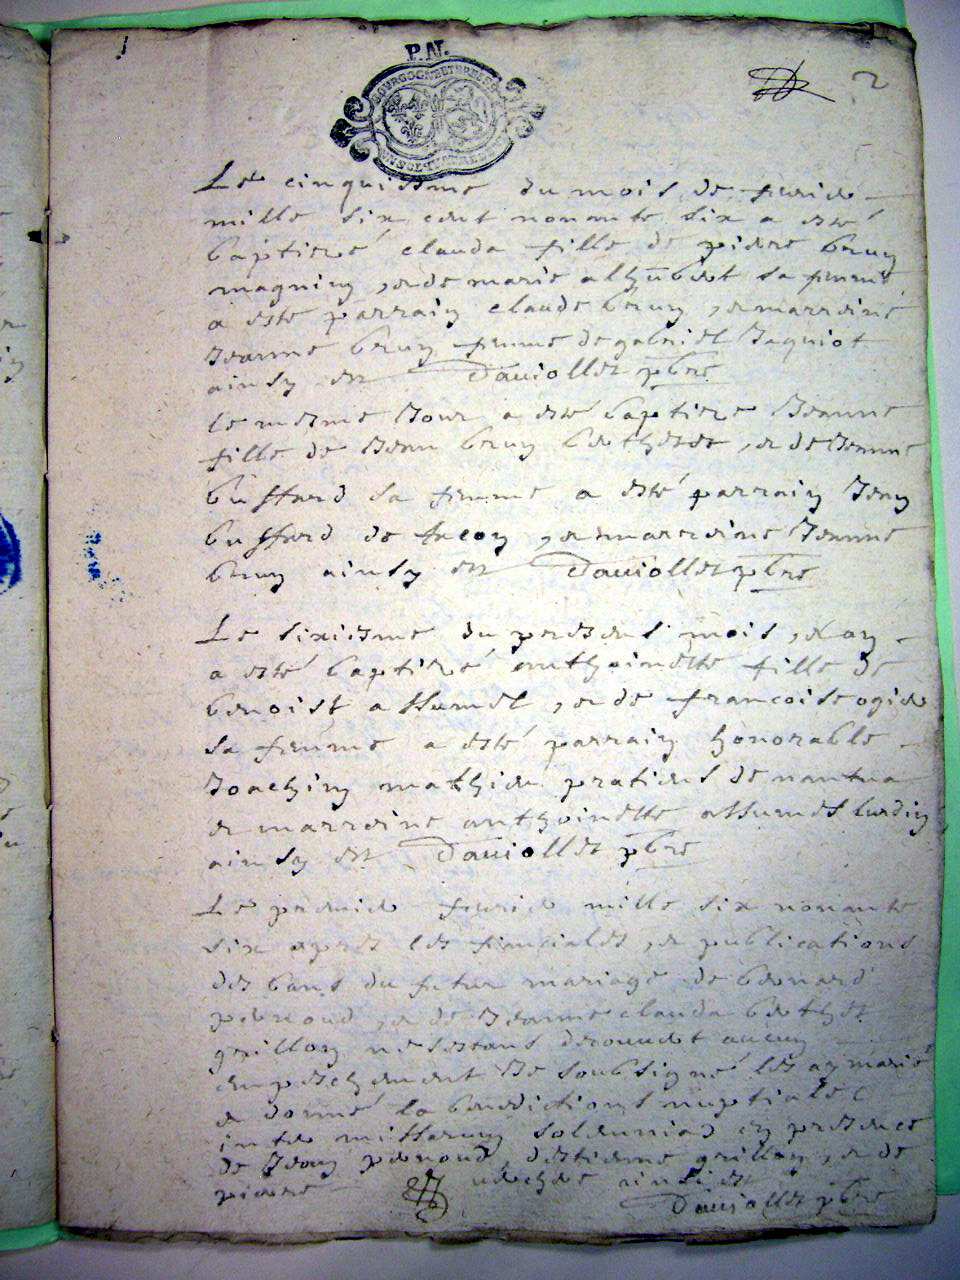 P.N.
BOURGOGNE ET BRESSE
2
Le cinquiesme du mois de feurier
mille six cent nonante six a esté
baptiseé clauda fille de pierre bruy
magnin, et de marie all sa femme
a esté parrain claude bruy, et marreine
Jeanne bruy femme de gabriel Jaquiot
ainsy est Dauiollet pbre
le mesme Jour a esté baptisee Jeanne
fille de Jean bruy berthet, et de Jeanne
buffard sa femme a esté parrain Jean
buffard de, et marreine Jeanne
bruy ainsy est Dauiollet pbre
Le sixiesme du present mois, et an
a esté baptiseé anthoinette fille de
benoist assumel, et de francoise ogier
sa femme a esté parrain honorable
Joachim mathieu pratiens de nantua
et marreine anthoinette assumel
ainsy est Dauiollet pbre
Le premier feurier mille six nonante
six apres les fiancialles, et publications
des bans du futur mariage de bernard
pernoud, et de Jeanne clauda berthet
grillon ne sestant decouuert aucun
empeschement Je soubsigné les ay marié
et donné la benediction nuptiale
inter missarum solemnia en presence
de Jean pernoud, destienne grillon, et de
pierre ainsi est
Dauiollet pbre